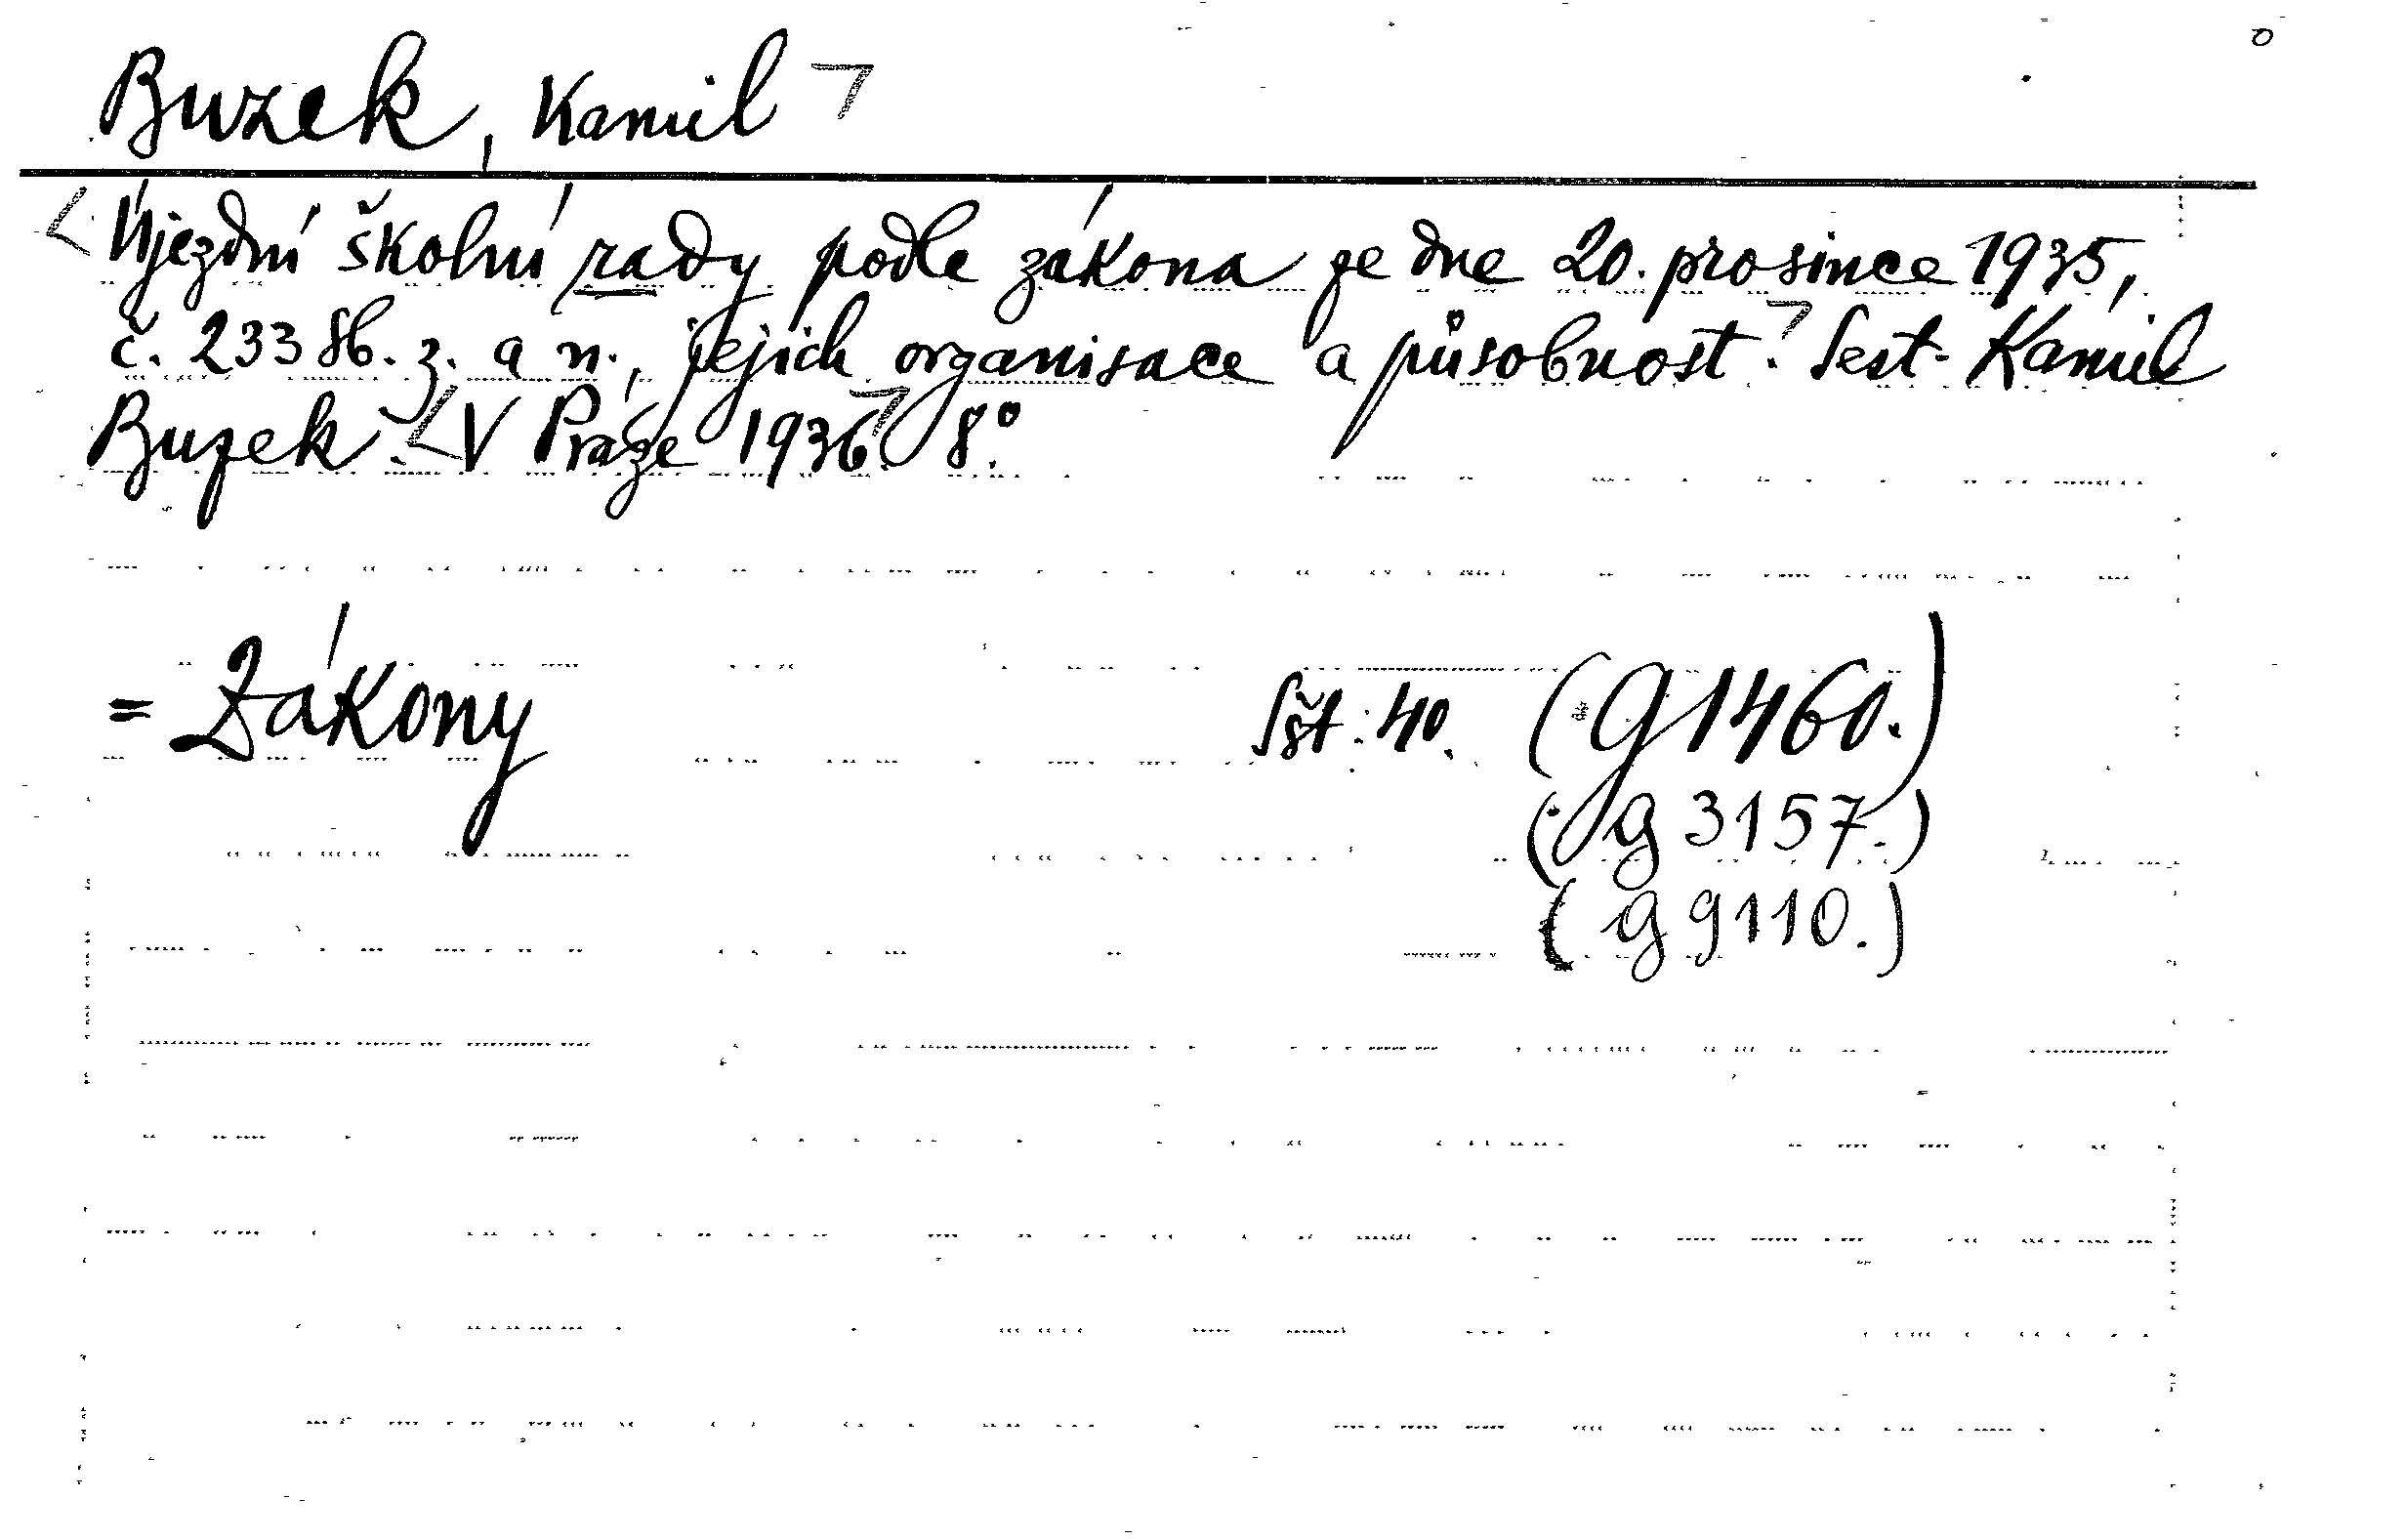 Buzek, Kamil
Újezdní školní rady podle zákona ze dne 20. prosince 1935,
č. 233 Sb. z. a n., jejich organisace a působnost. Sest. Kamil
Buzek. V Praze 1936. 8°.
= Zákony
Sšt. 40. (g 1460.)
(g 3157.)
(g 9110.)